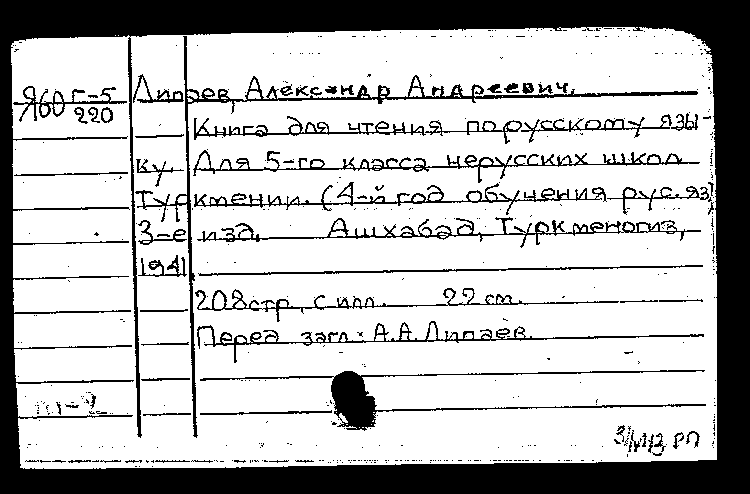 Я60 Г-5
220
Липаев, Александр Андреевич.
Книга для чтения по русскому язы-
ку. Для 5-го класса нерусских школ
Туркмении. (4-й год обучения рус. яз)
3-е изд. Ашхабад, Туркменогиз,
1941
208 стр, с илл. 22 см.
Перед загл: А.А. Липаев.